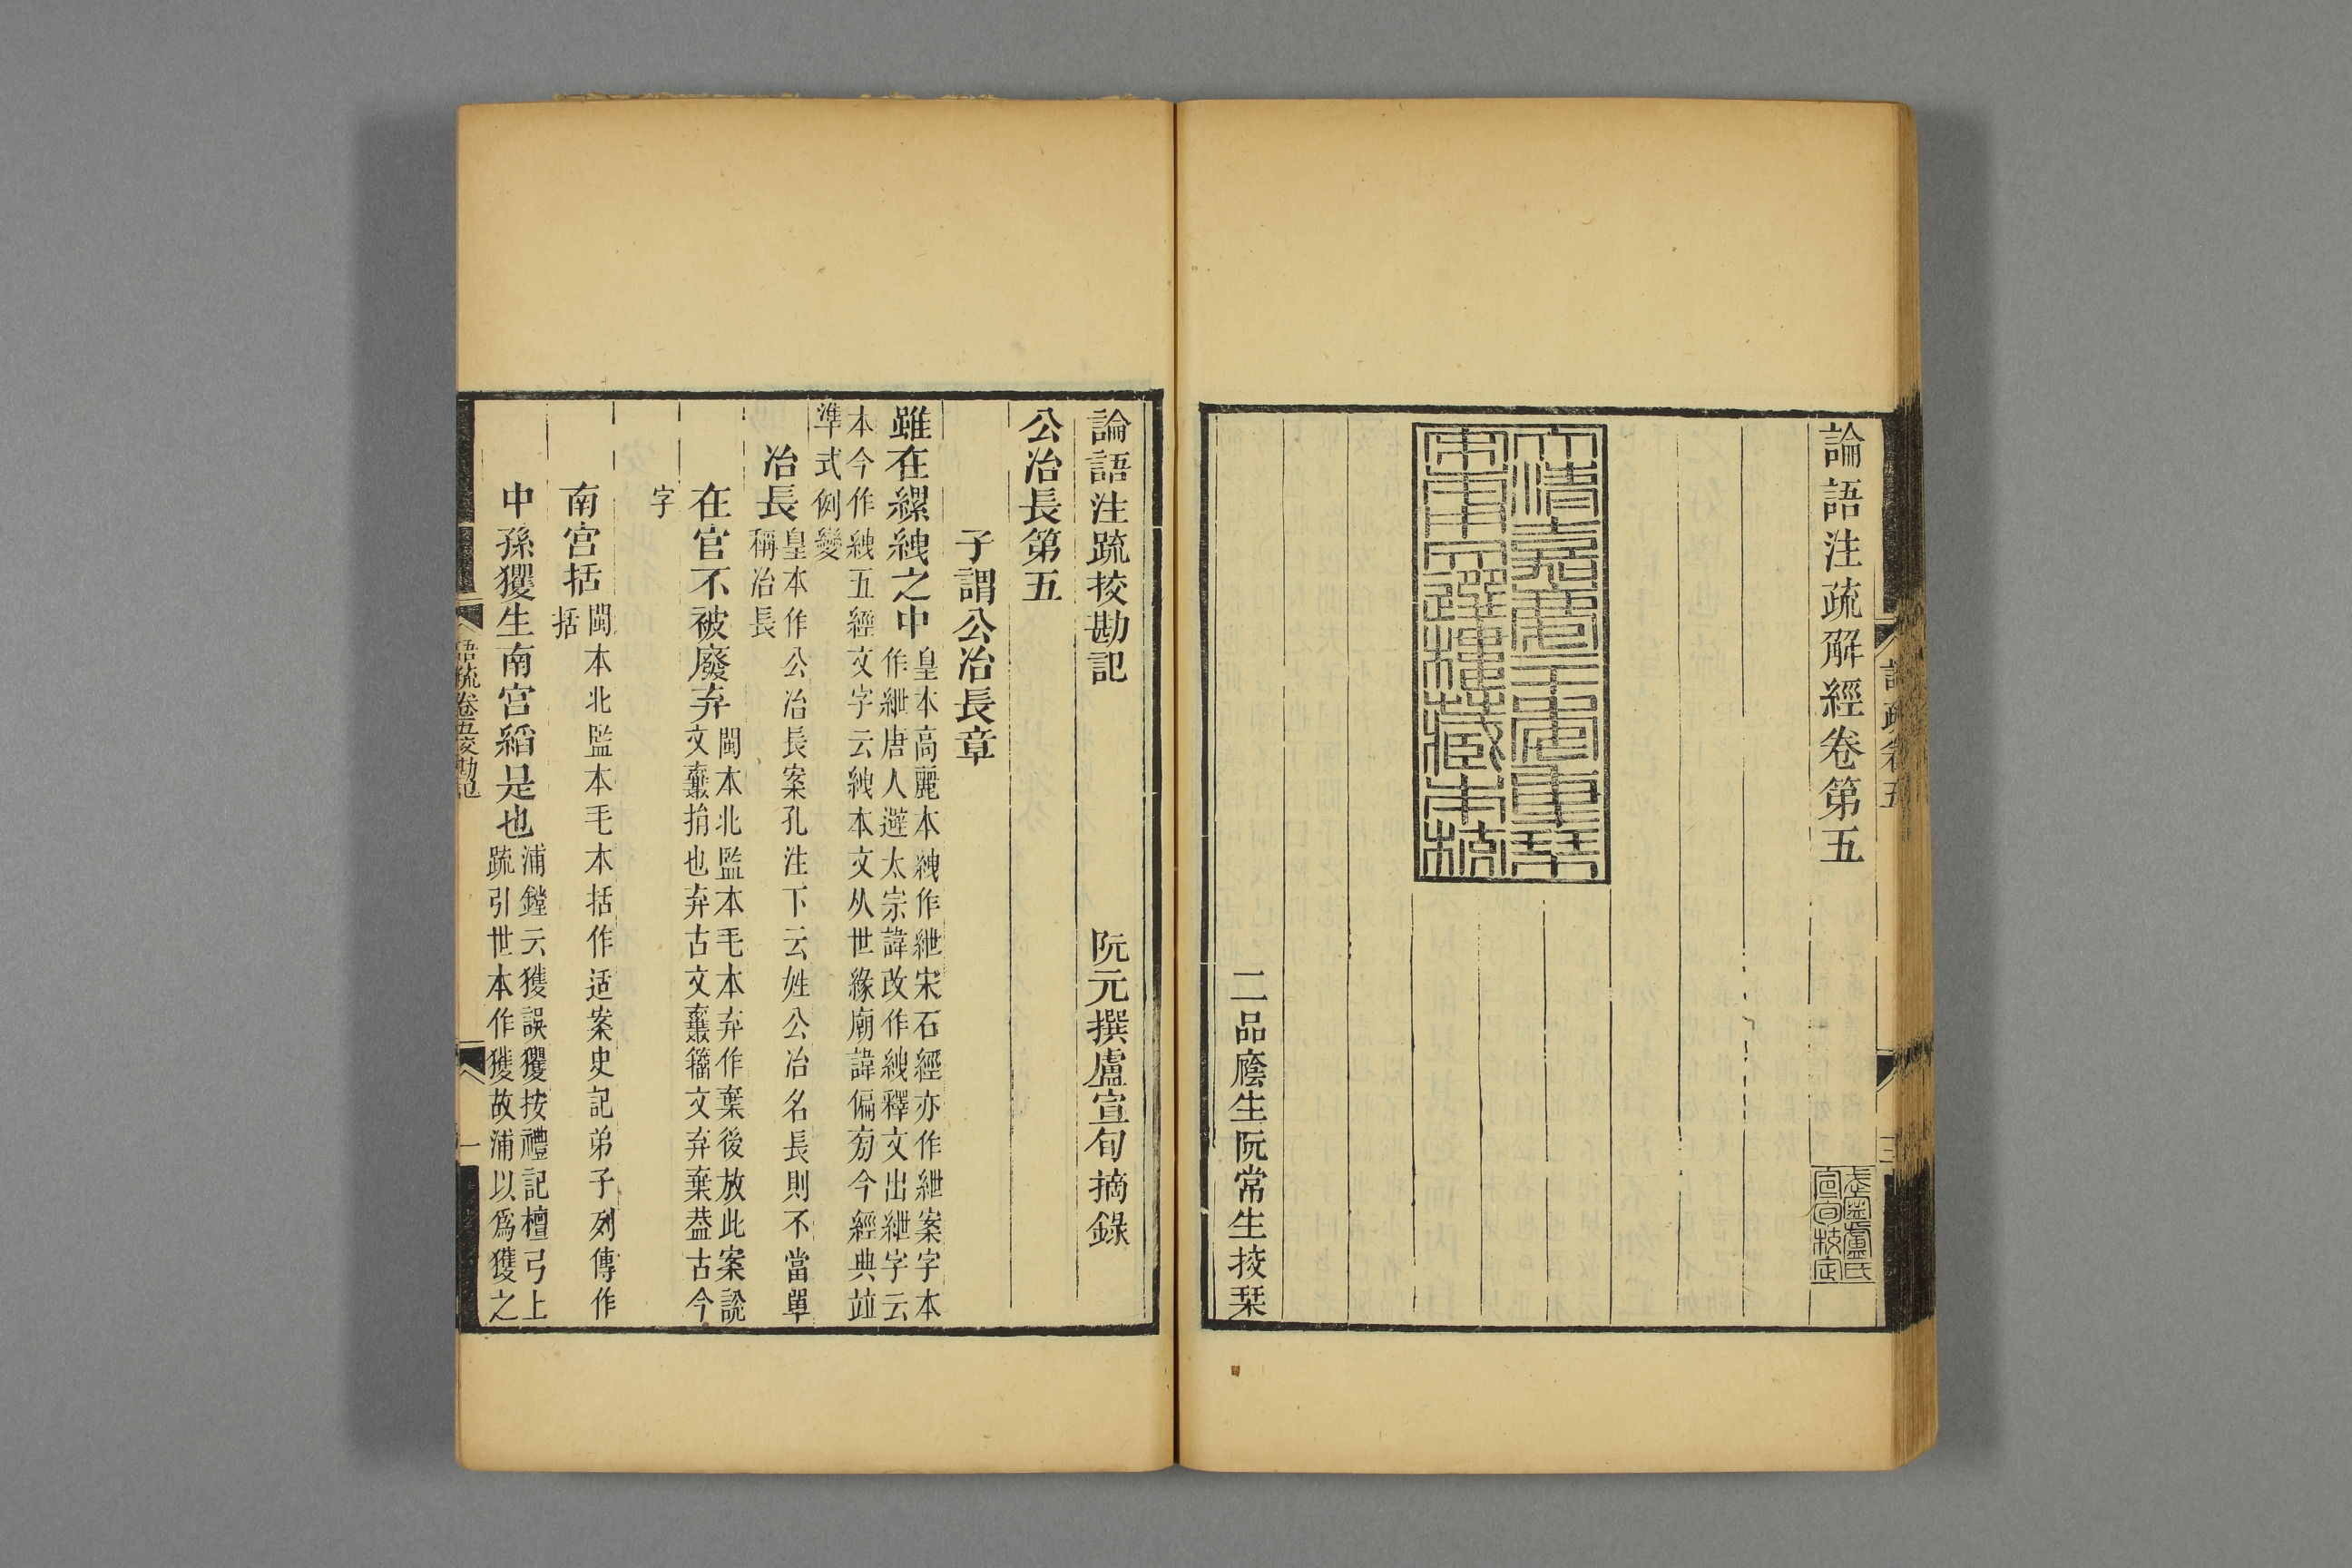 論語注疏解經卷第五
大清嘉慶二十年重栞
宋本用文選樓藏本校
二品廕生阮常生挍栞
論語注疏挍勘記
阮元撰盧宣旬摘錄
公冶長第五
子謂公冶長章
雖在縲絏之中
皇本高麗本絏作紲宋石經亦作紲案字本
作紲唐人避太宗諱改作絏釋文出紲字云
本今作絏五經文字云絏本文从世緣廟諱偏旁今經典竝
準式例變
冶長
皇本作公冶長案孔注下云姓公冶名長則不當單
稱冶長
在官不被廢弃
閩本北監本毛本弃作棄後放此案說
文棄捐也弃古文棄籒文弃棄葢古今
字
南宮括
閩本北監本毛本括作适案史記弟子列傳作
括
中孫玃生南宮縚是也
浦鏜云獲誤玃按禮記檀弓上
疏引世本作獲故浦以爲獲之
語疏卷五挍勘記
一